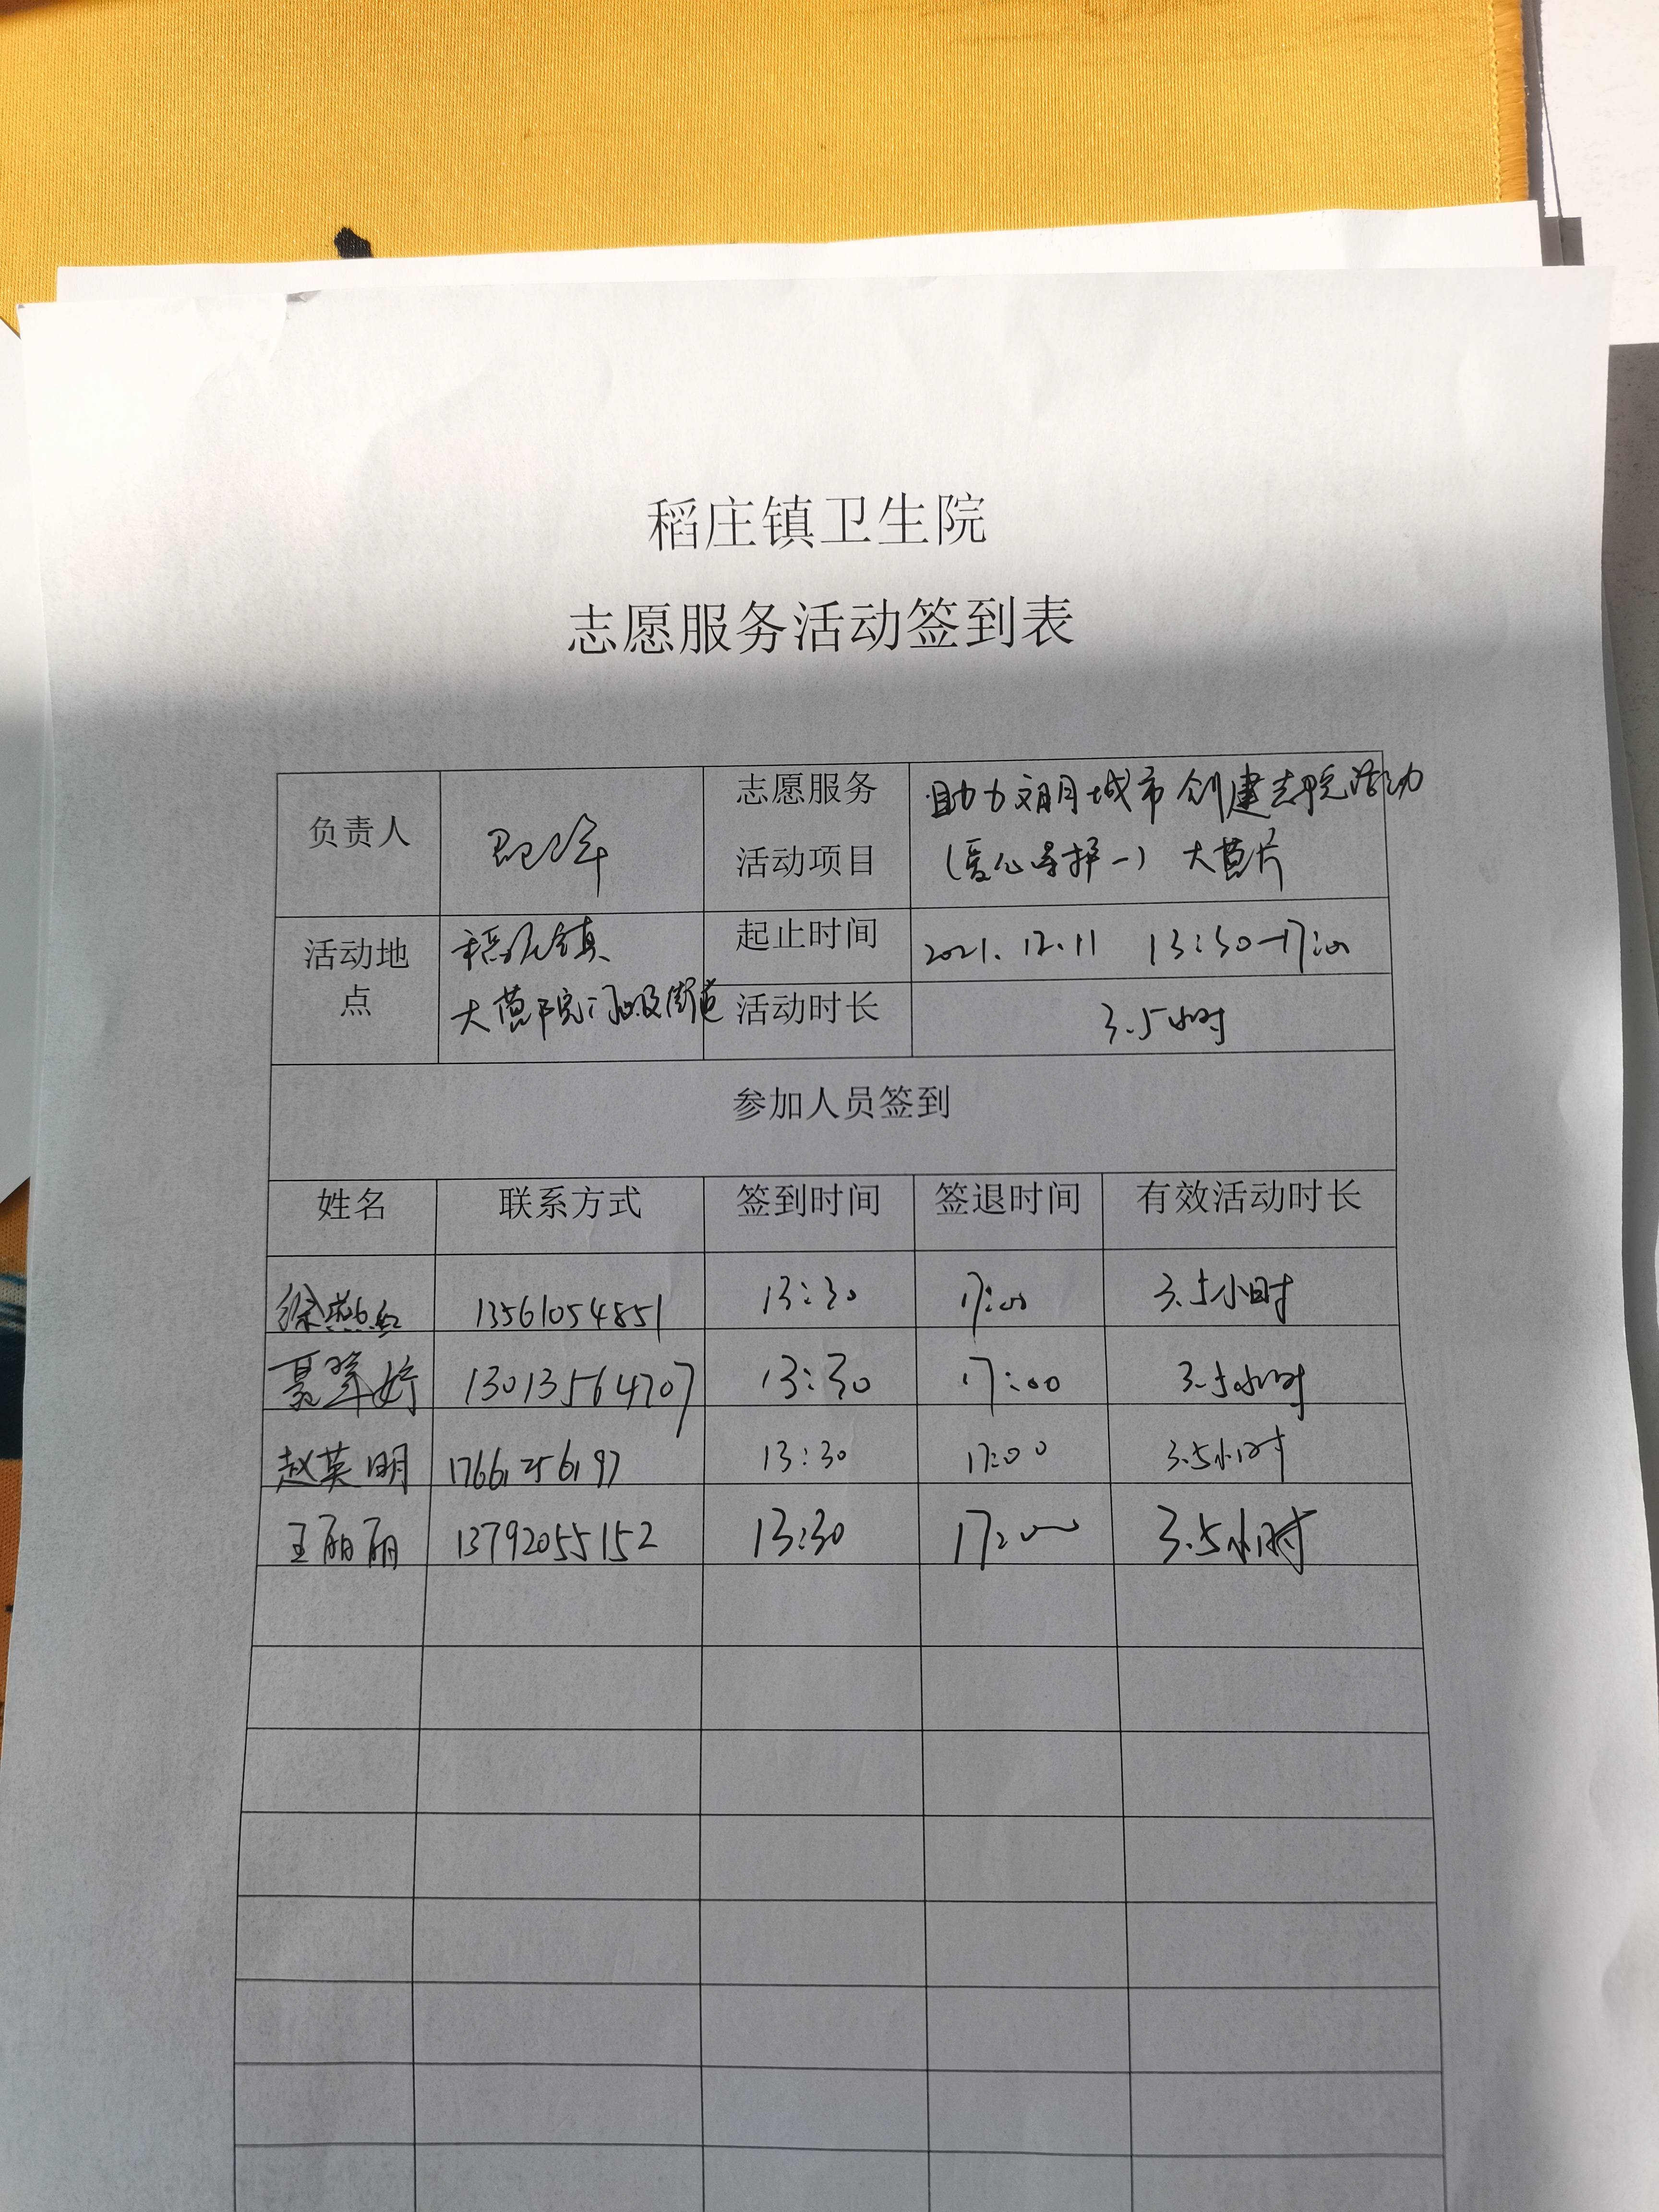 稻庄镇卫生院
志愿服务活动签到表
负责人
志愿服务
活动项目
助力文明城市创建志愿活动
(爱心导护一) 大营片
活动地
点
稻庄镇
大营院门口及街道
起止时间
2021.12.11 13:30-17:00
活动时长
3.5小时
参加人员签到
姓名 联系方式 签到时间 签退时间 有效活动时长
徐燕红 13561054851 13:30 17:00 3.5小时
聂翠婷 13013564707 13:30 17:00 3.5小时
赵英明 13:30 17:00 3.5小时
王丽丽 13792055152 13:30 17:00 3.5小时